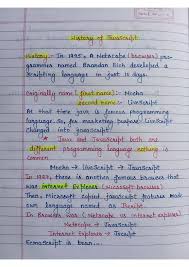 History of JavaScript
History:- In 1995, A Netscape (browser) pro-
grammer named Brandan Eich developed a
Scripting language in just 10 days.
Originally name (first name):- Mocha
second name:- LiveScript
At that time java is famous programming
language. So, for marketing business! LiveScript
changed into JavaScript
Java and JavaScript both are
different programming language nothing is
common
Mocha → LiveScript → JavaScript
In 1997, there is another famous browser that
was Internet Explorer (Microsoft browser)
Then, Microsoft copied JavaScript features make
own language named as JScript
In Browser war (Netscape vs Internet explorer)
Netscape → JavaScript
Internet Explorer → JScript
EcmaScript is born....